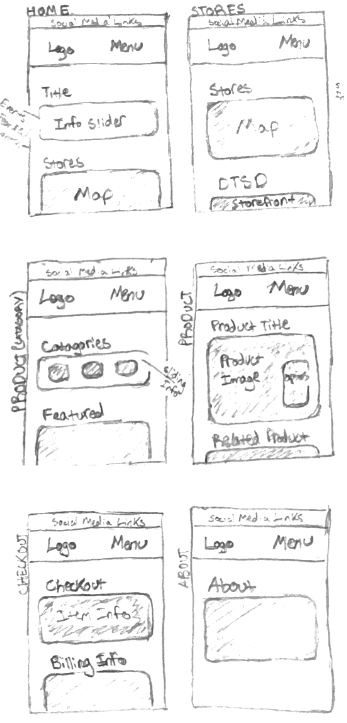 HOME
Social Media Links
Logo Menu
Title
Info Slider
Stores
Map
STORES
Social Media Links
Logo Menu
Stores
Map
DTSD
Storefront
PRODUCT (CATAGORY)
Social Media Links
Logo Menu
Catagories
Featured
PRODUCT
Social Media Links
Logo Menu
Product Title
Product
Image
Related Product
CHECKOUT
Social Media Links
Logo Menu
Checkout
Item Info
Billing Info
ABOUT
Social Media Links
Logo Menu
About